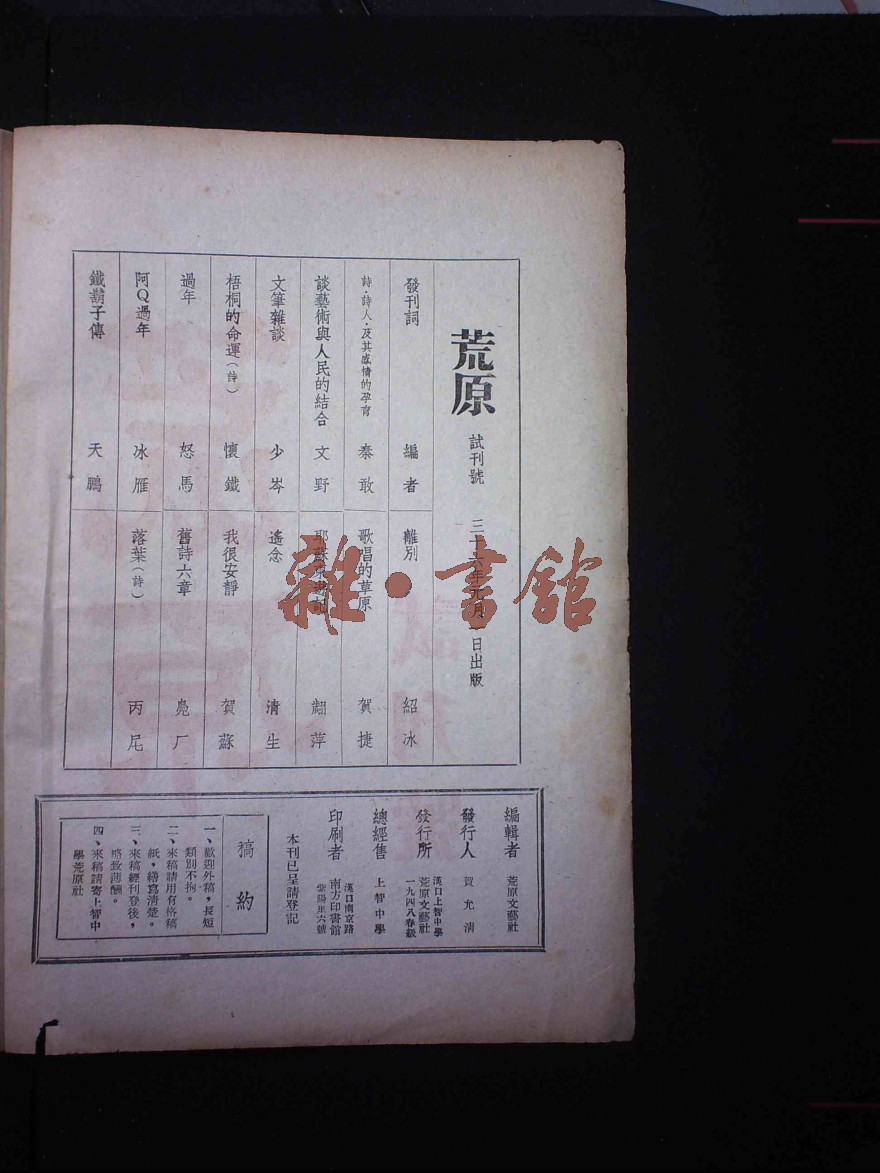 荒原 試刊號 三十六年元月一日出版
發刊詞 編者
詩·詩人·及其感情的孕育 泰敢
談藝術與人民的結合 文野
文筆雜談 少岑
梧桐的命運(詩) 懷鐵
過年 怒馬
阿Q過年 冰雁
鐵鬍子傳 天鵬
離別 紹冰
歌唱的草原 賀捷
耶蘇 翩萍
遙念 清生
我很安靜 賀蘇
舊詩六章 厂
落葉(詩) 丙尼
雜·書館
編輯者 荒原文藝社
發行人 賀允清
發行所 漢口上智中學
荒原文藝社
一九四八春級
總經售 上智中學
印刷者 漢口南京路
南方印書館
紫陽里六號
本刊已呈請登記
稿約
一、歡迎外稿,長短
類別不拘。
二、來稿請用有格稿
紙,繕寫清楚。
三、來稿經刊登後,
略致薄酬。
四、來稿請寄上智中
學荒原社